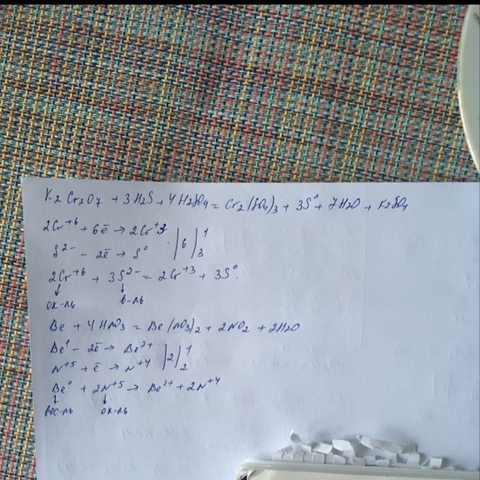 K2Cr2O7 + 3H2S + 4H2SO4 = Cr2(SO4)3 + 3S⁰ + 7H2O + K2SO4
2Cr⁺⁶ + 6ē → 2Cr⁺³ | 6 | 1
S²⁻ - 2ē → S⁰ 3
2Cr⁺⁶ + 3S²⁻ = 2Cr⁺³ + 3S⁰.
↓ ↓
ок-ль в-ль
Be + 4HNO3 = Be(NO3)2 + 2NO2 + 2H2O
Be⁰ - 2ē → Be²⁺ | 2 | 1
N⁺⁵ + ē → N⁺⁴ 2
Be⁰ + 2N⁺⁵ → Be²⁺ + 2N⁺⁴
↓ ↓
вос-ль ок-ль